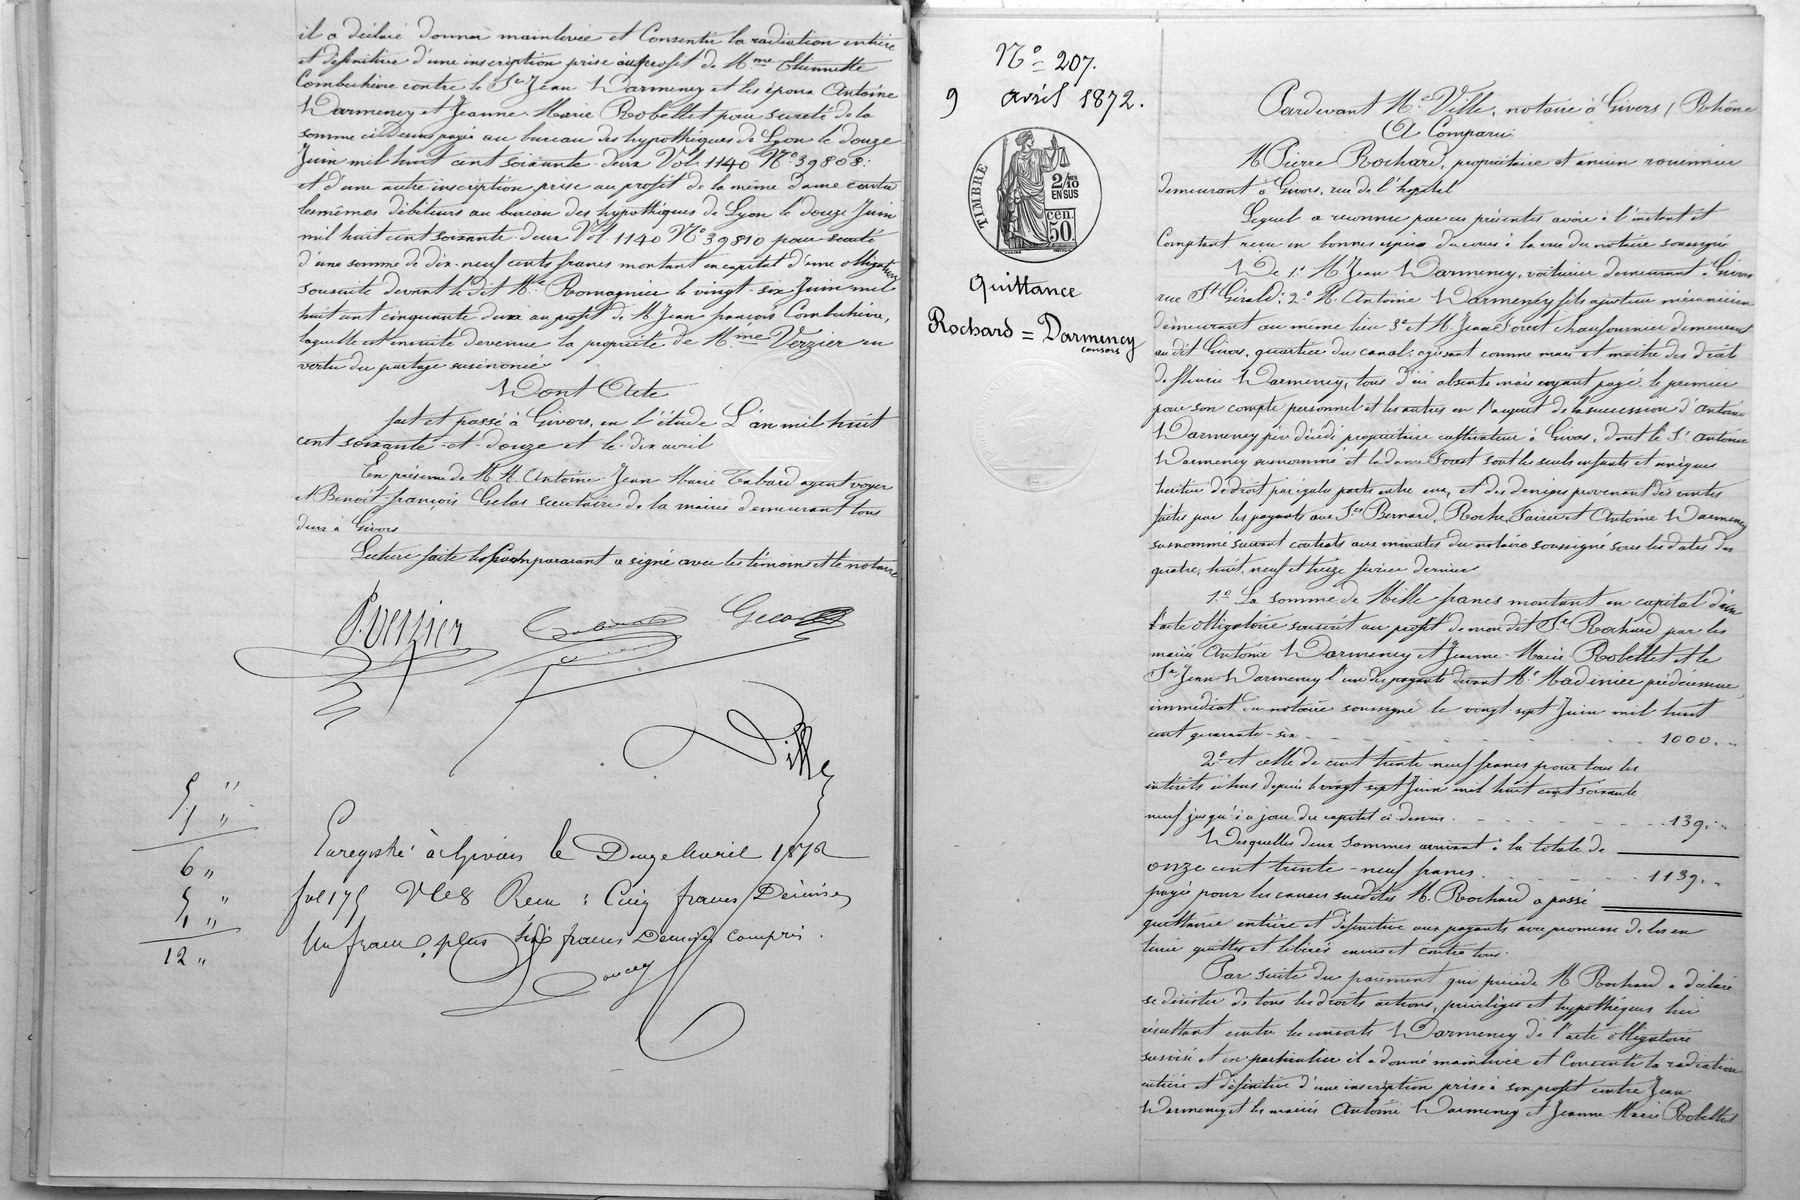 il a déclaré donner mainlevée et Consentir la radiation entière
et définitive d'une inscription prise au profit de Mme Etiennette
Combichère contre le Sr Jean Darmency et les époux Antoine
Darmency et Jeanne Marie Robellet pour sureté de la
somme ci dessus payée au bureau des hypothèques de Lyon le douze
Juin mil huit cent soixante-deux Vol. 1140 No 39808:
et d'une autre inscription prise au profit de la même dame contre
les mêmes débiteurs au bureau des hypothèques de Lyon le douze Juin
mil huit cent soixante-deux Vol. 1140 No 39810 pour sureté
d'une somme de dix-neuf cents francs montant en capital d'une obligation
souscrite devant le dit Me Romagnier le vingt-six Juin mil
huit cent cinquante deux au profit de M. Jean françois Combichère,
laquelle est ensuite devenue la propriété de Mme Verzier en
vertu du partage susénoncé
Dont Acte
fait et passé à Givors, en l'étude L'an mil huit
cent soixante-et-douze et le dix avril
En présence de M.M. Antoine Jean Marie Tabard agent voyer
et Benoît-françois Gelas secrétaire de la mairie demeurant tous
deux à Givors
Lecture faite le Comparant a signé avec les témoins et le notaire
P. Verzier
Tabard
Gelas
Ville
5 "
1 "
6 "
5 "
1 "
12 "
Enregistré à Givors le Douze Avril 1872
fol 175 Vc 8 Reçu : Cinq francs Décimes
Un franc, plus six francs Décimes compris.
No 207.
9 avril 1872.
TIMBRE
2/10
EN SUS
50 cen.
Quittance
Rochard = Darmency
consors
Pardevant Me Ville, notaire à Givors (Rhône
A Comparu
M Pierre Rochard, propriétaire et ancien rouennier
demeurant à Givors, rue de l'hopital
Lequel a reconnu par ces présentes avoir à l'instant et
Comptant reçu en bonnes espèces du cours à la vue du notaire soussigné
De 1o M. Jean Darmency, voiturier demeurant à Givors
rue St Gérald; 2o M. Antoine Darmency fils ajusteur mécanicien
demeurant au même lieu 3o et M. Jean Forest chaufournier demeurant
au dit Givors, quartier du canal; agissant comme mari et maître des droits
de Marie Darmency, tous d'ici absents mais ayant payé le premier
pour son compte personnel et les autres en l'acquit de la succession d'Antoine
Darmency père décédé propriétaire cultivateur à Givors, dont le Sr Antoine
Darmency susnommé et la dame Forest sont les seuls enfants et uniques
héritiers de droit par égales parts entre eux, et des deniers provenant des ventes
faites par les payants aux Srs Bernard, Roche, Faure et Antoine Darmency
susnommé suivant contrats aux minutes du notaire soussigné sous les dates des
quatre, huit, neuf et treize février dernier
1o La somme de Mille francs montant en capital d'un
acte obligatoire souscrit au profit de mon dit Sr Rochard par les
mariés Antoine Darmency et Jeanne-Marie Robellet et le
Sr Jean Darmency l'un des payants devant Me Madinier prédécesseur
immédiat du notaire soussigné le vingt-sept Juin mil huit
cent quarante-six 1000. "
2o et celle de cent trente neuf francs pour tous les
intérêts échus depuis le vingt sept Juin mil huit cent soixante
neuf jusqu'à ce jour du capital ci-dessus 139. "
Desquelles deux sommes arrivant à la totale de
onze cent trente-neuf francs 1139. "
payée pour les causes susdites M. Rochard a passé
quittance entière et définitive aux payants avec promesse de les en
tenir quittes et libérés envers et contre tous.
Par suite du paiement qui précède M Rochard a déclaré
se désister de tous les droits actions, privilèges et hypothèques lui
résultant contre les consorts Darmency de l'acte obligatoire
susvisé et en particulier il a donné mainlevée et Consenti la radiation
entière et définitive d'une inscription prise à son profit contre Jean
Darmency et les mariés Antoine Darmency et Jeanne-Marie Robellet